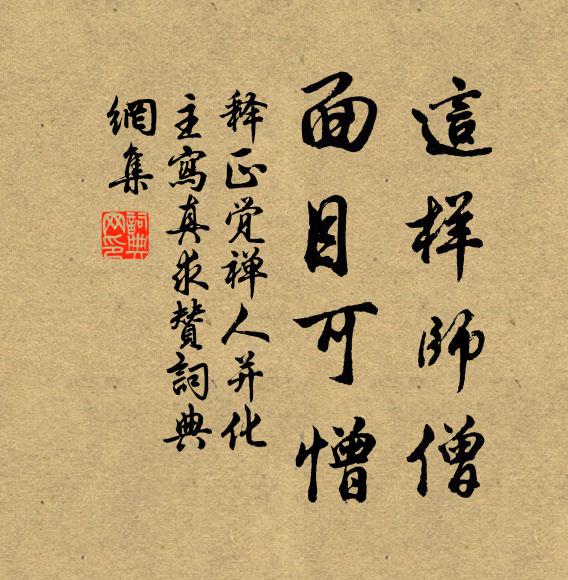 這样師僧
面目可憎
释正觉禅人并化
主寫真求賛詞典
網集
詞典网印